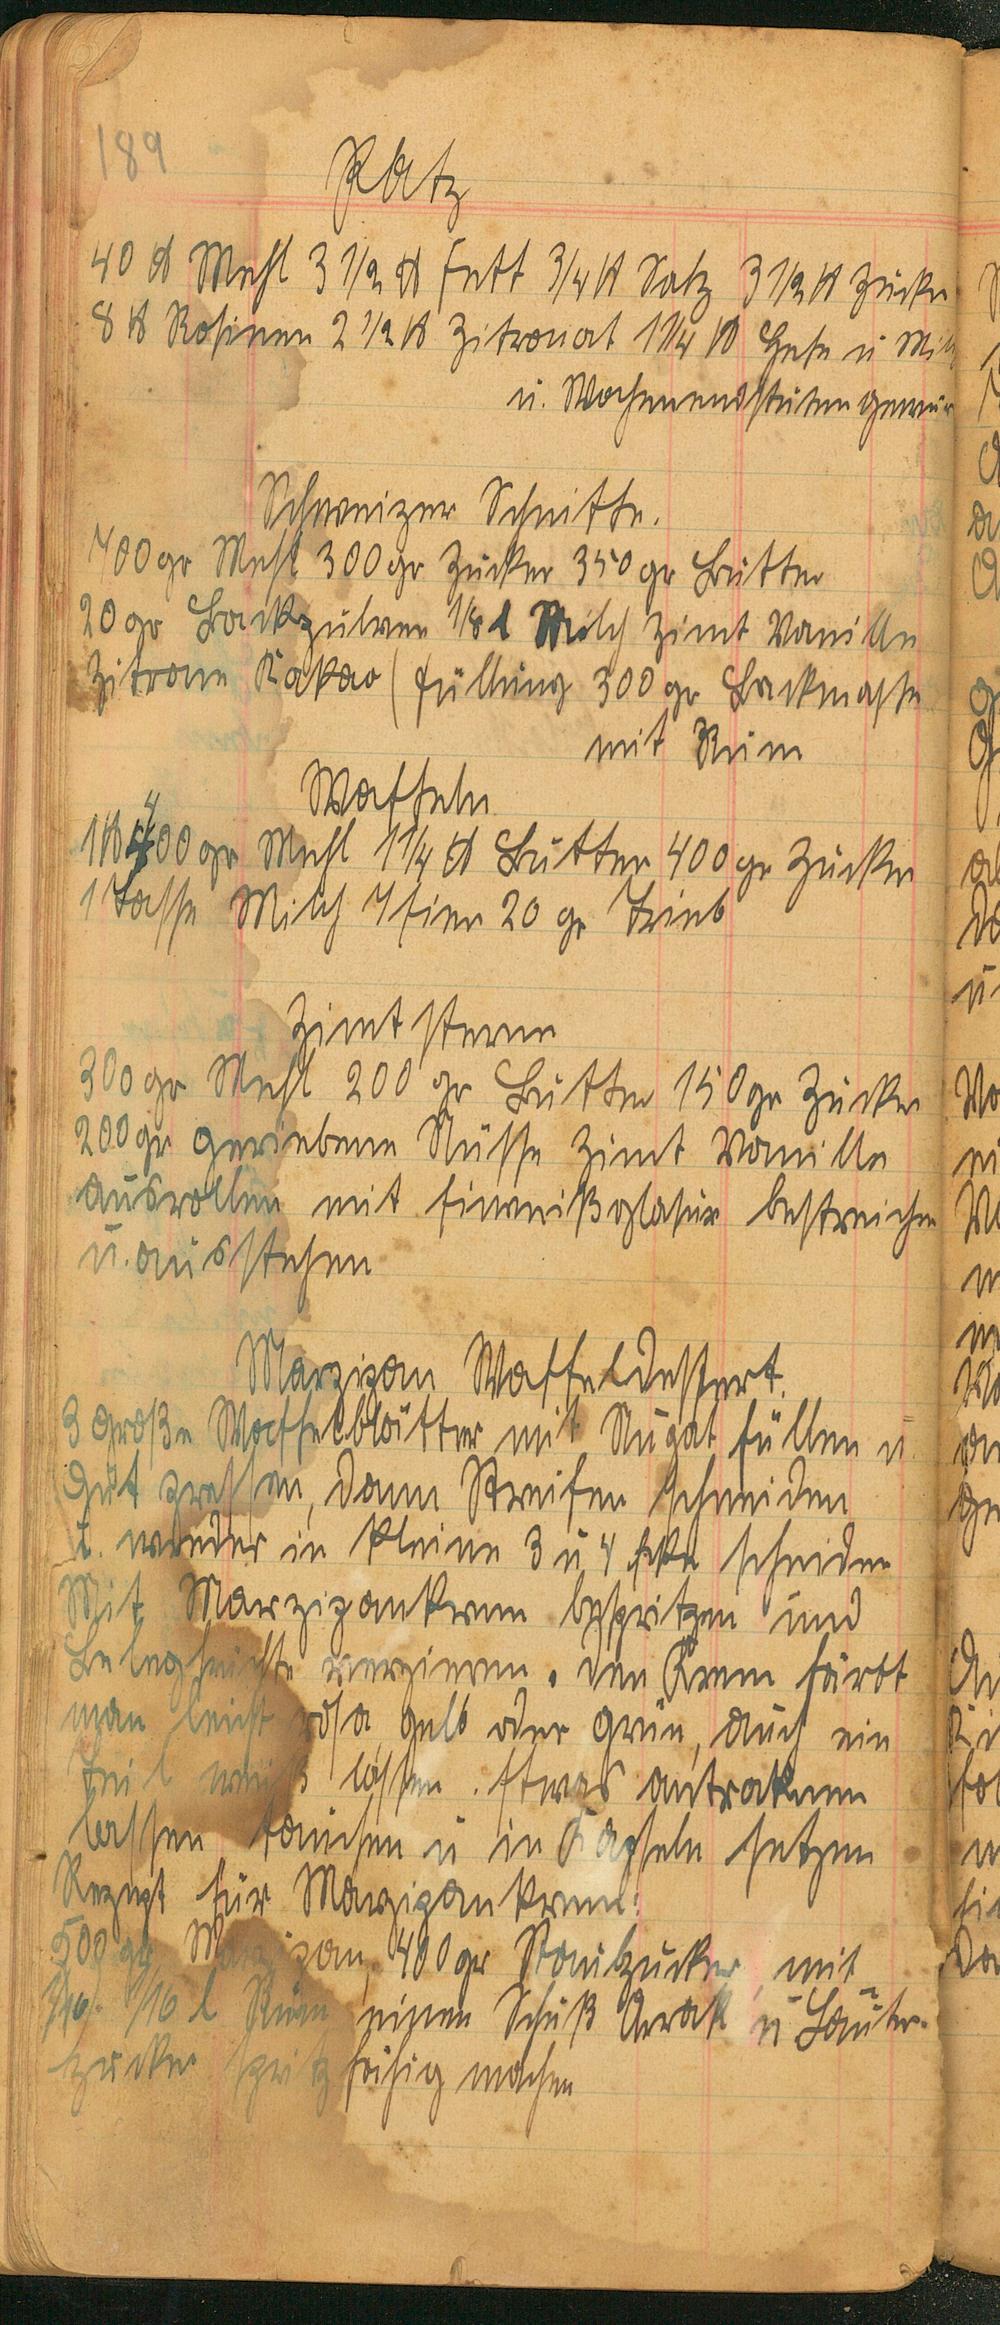 189
Platz
40 ℔ Mehl 3 1/2 ℔ Fett 3/4 ℔ Salz 3 1/2 ℔ Zucker
8 ℔ Rosinen 2 1/2 ℔ Zitronat 1 1/4 ℔ Hefe u Milch
u. Wochenendstuten gewür
Schweizer Schnitte.
700 gr Mehl 300 gr Zucker 350 gr Butter
20 gr Backpulver 1/8 l Milch Zimt Vanille
Zitrone Kakao (Füllung 300 gr Backmasse
mit Rum
Waffeln
1 ℔ 400 gr Mehl 1 1/4 ℔ Butter 400 gr Zucker
1 Tasse Milch 7 Eier 20 gr Trieb
Zimtsterne
300 gr Mehl 200 gr Butter 150 gr Zucker
200 gr geriebene Nüsse Zimt Vanille
ausrollen mit Eiweißglasur bestreichen
u. ausstehen
Marzipan Waffeldessert.
3 große Waffelblätter mit Nugat füllen u
gut pressen, dann Streifen schneiden
u. wieder in kleine 3 u 4 Ecke scheiden
Mit Marzipankrem bespritzen und
Belegfrüchte verzieren. Den Krem färbt
man leicht rosa gelb oder grün, auch ein
Teil weiß lassen. Etwas antroknen
lassen tauchen u in Kapseln setzen
Rezept für Marzipankrem:
500 gr Marzipan, 400 gr Staubzucker, mit
1/16 l Rum einen Schuß Arrak u Läuter-
zucker spritzfähig machen